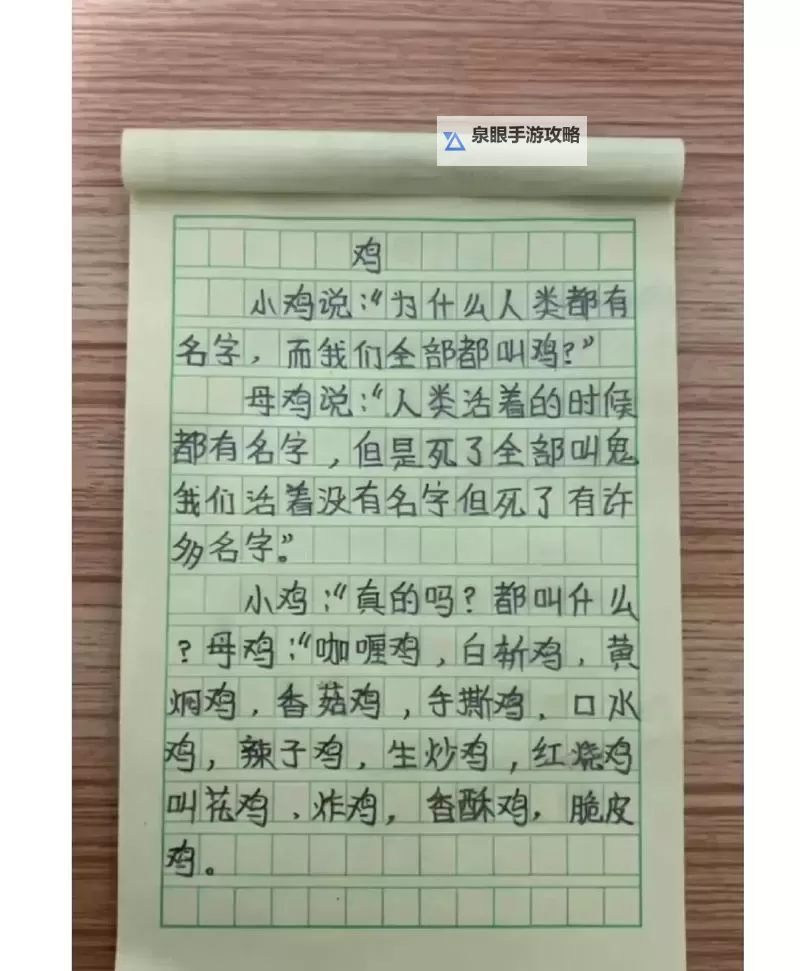 泉眼手游攻略
鸡
小鸡说:“为什么人类都有
名字,而我们全部都叫鸡?”
母鸡说:“人类活着的时候
都有名字,但是死了全部叫鬼
我们活着没有名字但死了有许
多名字。”
小鸡:“真的吗?都叫什么
?母鸡:“咖喱鸡,白斩鸡,黄
焖鸡,香菇鸡,手撕鸡,口水
鸡,辣子鸡,生炒鸡,红烧鸡
叫花鸡,炸鸡,香酥鸡,脆皮
鸡。